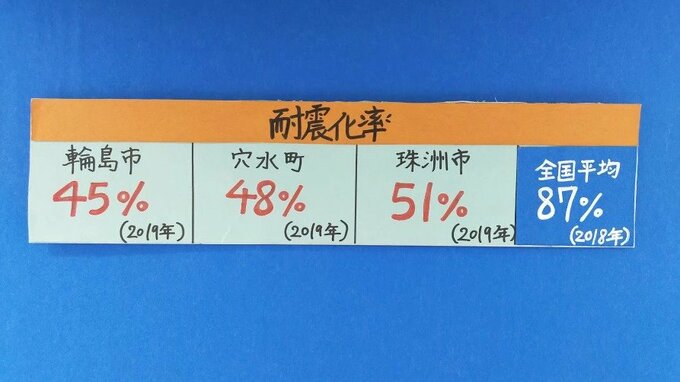 耐震化率
輪島市
45%
(2019年)
穴水町
48%
(2019年)
珠洲市
51%
(2019年)
全国平均
87%
(2018年)